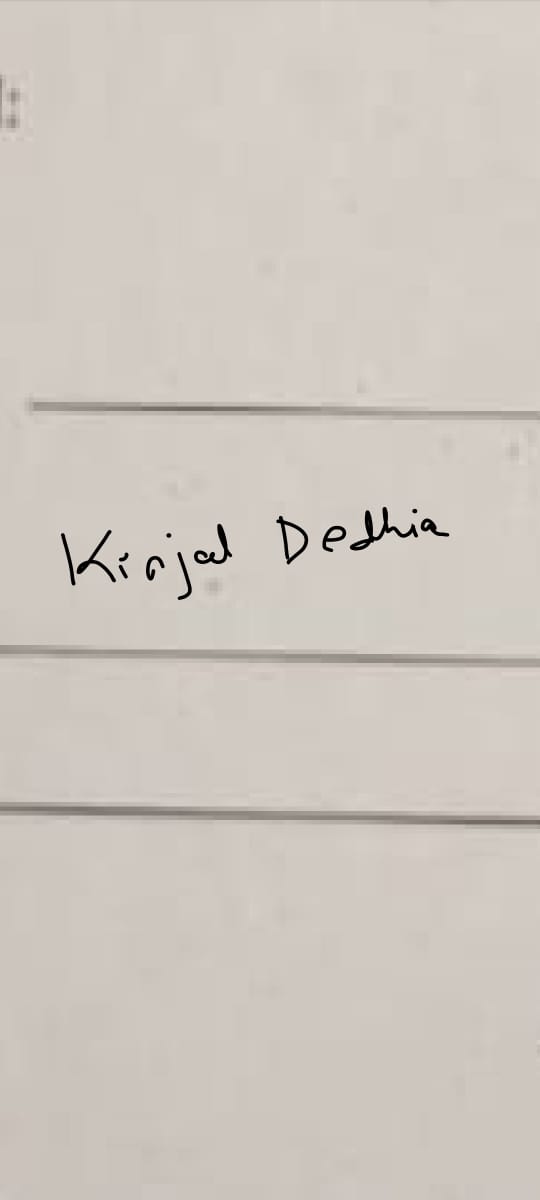 Kinjal Dedhia